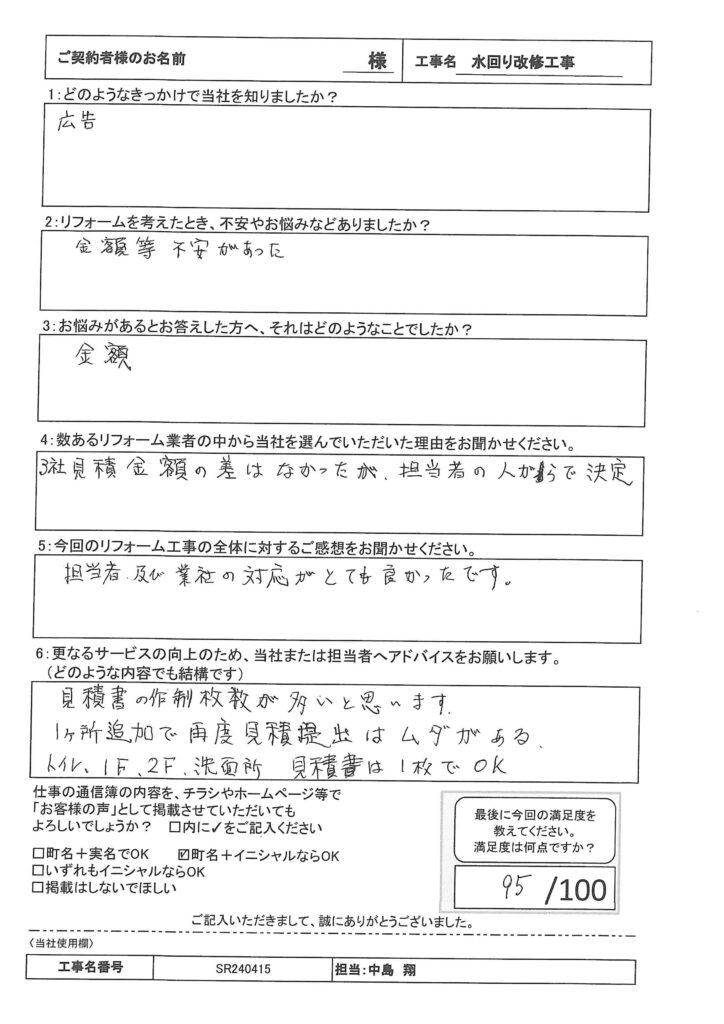 ご契約者様のお名前 様 工事名 水回り改修工事
1:どのようなきっかけで当社を知りましたか?
広告
2:リフォームを考えたとき、不安やお悩みなどありましたか?
金額等 不安があった
3:お悩みがあるとお答えした方へ、それはどのようなことでしたか?
金額
4:数あるリフォーム業者の中から当社を選んでいただいた理由をお聞かせください。
3社見積金額の差はなかったが、担当者の人がらで決定
5:今回のリフォーム工事の全体に対するご感想をお聞かせください。
担当者、及び業社の対応がとても良かったです。
6:更なるサービスの向上のため、当社または担当者へアドバイスをお願いします。
(どのような内容でも結構です)
見積書の作制枚数が多いと思います。
1ヶ所追加で再度見積提出はムダがある、
トイレ、1F、2F、洗面所 見積書は1枚でOK
仕事の通信簿の内容を、チラシやホームページ等で
「お客様の声」として掲載させていただいても
よろしいでしょうか? □内に✓をご記入ください
□町名+実名でOK ☑町名+イニシャルならOK
□いずれもイニシャルならOK
□掲載はしないでほしい
最後に今回の満足度を
教えてください。
満足度は何点ですか?
95 /100
ご記入いただきまして、誠にありがとうございました。
(当社使用欄)
工事名番号 SR240415 担当:中島 翔